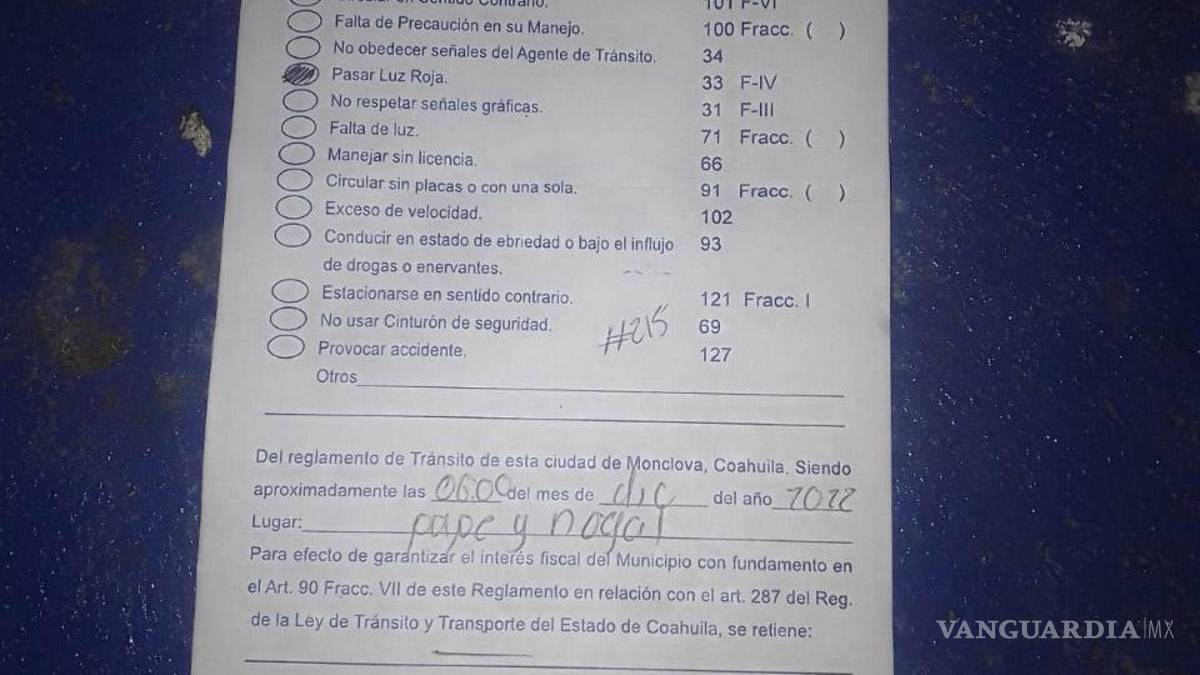 101 F-VI
Falta de Precaución en su Manejo. 100 Fracc. ( )
No obedecer señales del Agente de Tránsito. 34
Pasar Luz Roja. 33 F-IV
No respetar señales gráficas. 31 F-III
Falta de luz. 71 Fracc. ( )
Manejar sin licencia. 66
Circular sin placas o con una sola. 91 Fracc. ( )
Exceso de velocidad. 102
Conducir en estado de ebriedad o bajo el influjo 93
de drogas o enervantes.
Estacionarse en sentido contrario. 121 Fracc. I
No usar Cinturón de seguridad. #215 69
Provocar accidente. 127
Otros
Del reglamento de Tránsito de esta ciudad de Monclova, Coahuila. Siendo
aproximadamente las 06:00 del mes de dic del año 2022
Lugar: pape y nogal
Para efecto de garantizar el interés fiscal del Municipio con fundamento en
el Art. 90 Fracc. VII de este Reglamento en relación con el art. 287 del Reg.
de la Ley de Tránsito y Transporte del Estado de Coahuila, se retiene:
VANGUARDIA|MX